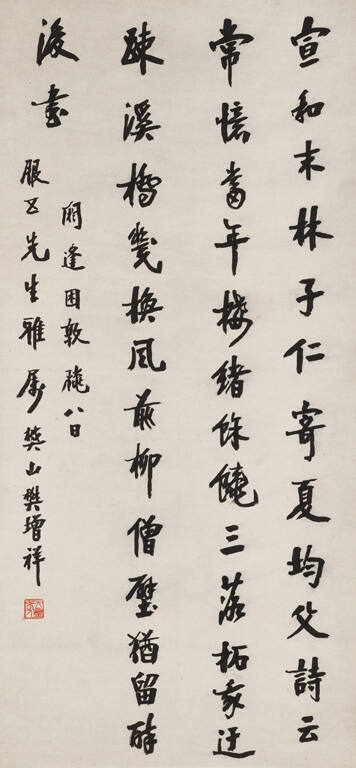 宣和末林子仁寄夏均父詩云
常憶當年接緒餘饒三落拓我迂
踈溪橋幾換風前柳僧壁猶留醉
後書
閼逢困敦臘八日
服五先生雅屬樊山樊增祥